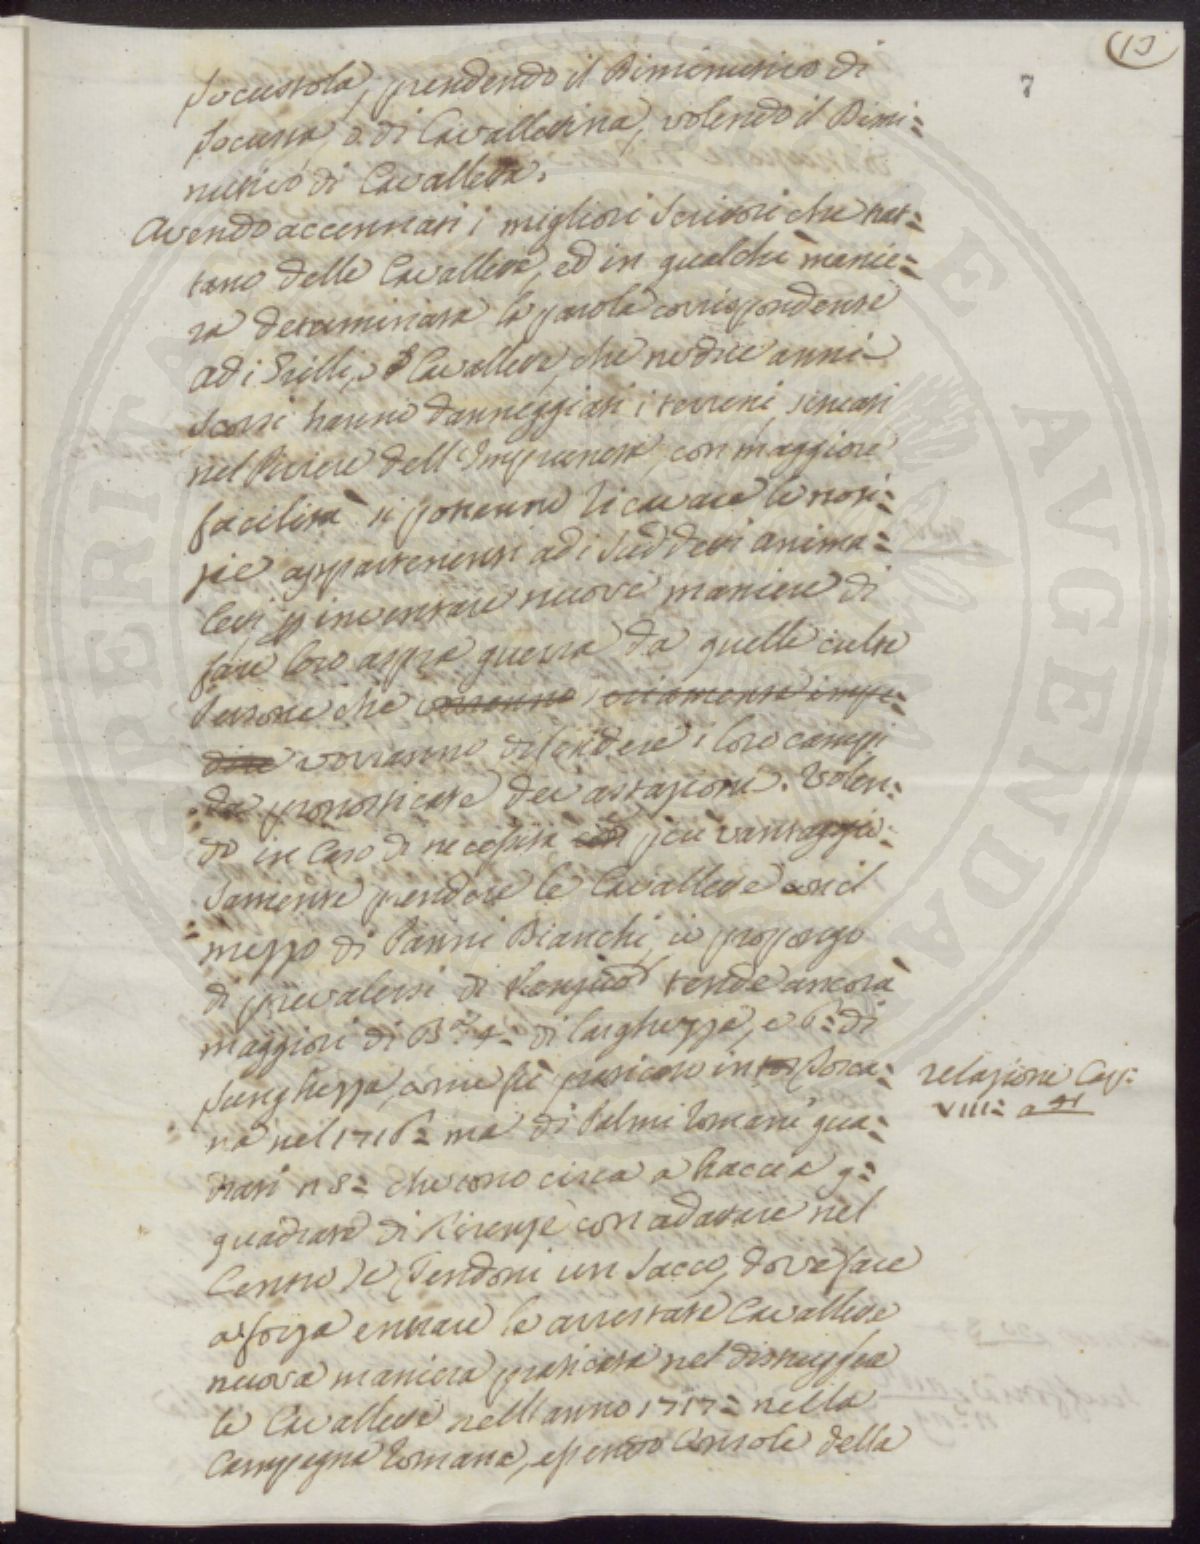 13
7
Locustola, prendendo il Diminutivo di
Locusta, o di Cavallettina, volendo il Dimi=
nutivo di Cavalletta.
Avendo accennati i migliori Scrittori che trat=
tano delle Cavallette, ed in qualche manie=
ra determinata la parola corrispondente
ad i Grilli, o Cavallette, che ne due anni
scorsi hanno danneggiati i terreni situati
nel Piviere dell'Impruneta, con maggiore
facilità si potranno ricavare le noti=
zie appartenenti ad i suddetti anima=
letti p inventare nuove maniere di
fare loro aspra guerra da quelle culte
Persone che vorranno impe=
dire vorranno difendere i loro campi
da pronosticate devastazioni. Volen=
do in caso di necessità con più vantaggio=
samente prendere le Cavallette con il
mezzo di Panni Bianchi, io propongo
di prevalersi di tende ancora
maggiori di B.a 4= di larghezza, e 6= di
lunghezza, come fù praticato in Tosca=
na nel 1716= ma di Palmi Romani qua=
drati n 8= che sono circa a braccia 9=
quadrate di Firenze con adattare nel
Centro de Tendoni un Sacco, dove fare
a forza entrare le arrestate Cavallette
nuova maniera praticata nel distruggere
le Cavallette nell'anno 1717= nella
Campagna Romana, essendo Console della
relazione Cap:
VIII= a 41
SPERITATE AUGENDAE